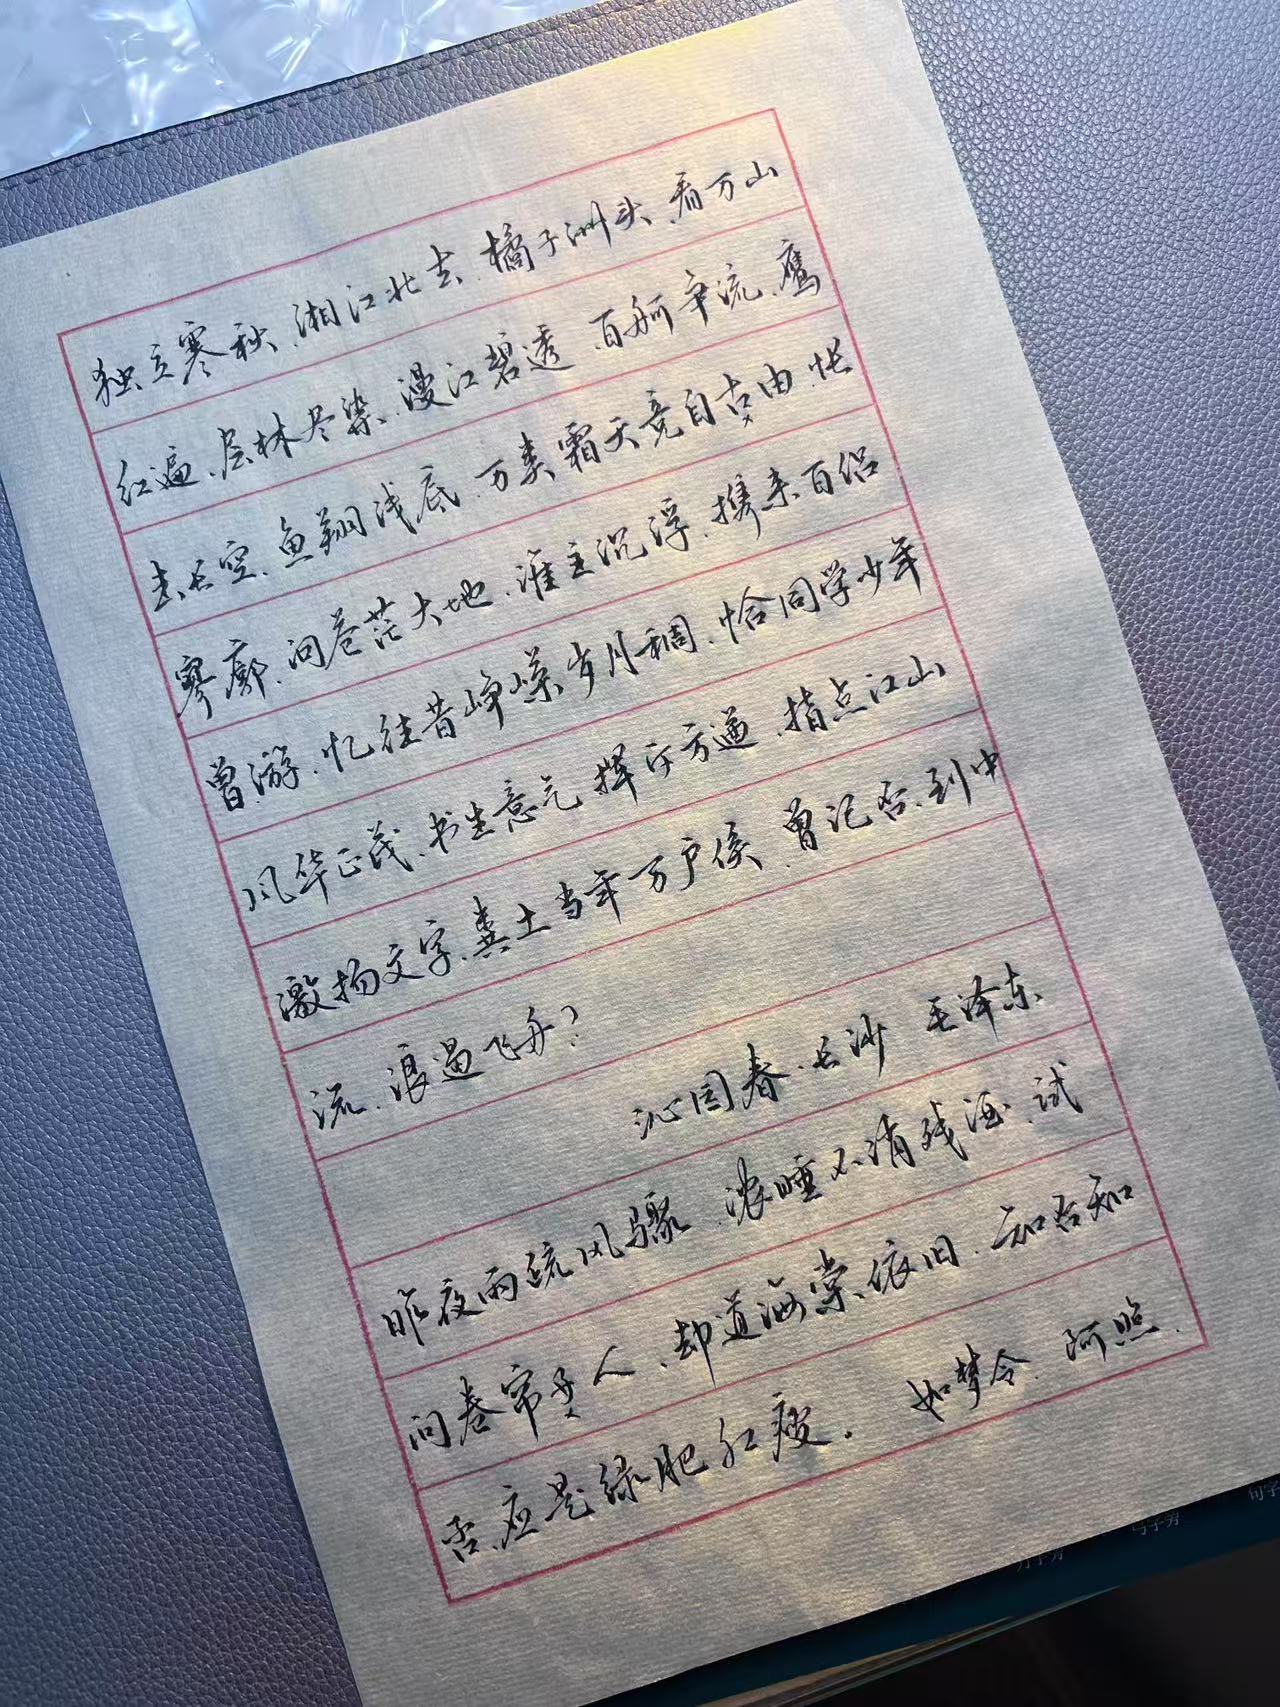 独立寒秋、湘江北去、橘子洲头、看万山
红遍、层林尽染、漫江碧透、百舸争流、鹰
击长空、鱼翔浅底、万类霜天竞自由、怅
寥廓、问苍茫大地、谁主沉浮、携来百侣
曾游、忆往昔峥嵘岁月稠、恰同学少年
风华正茂、书生意气 挥斥方遒、指点江山
激扬文字、粪土当年万户侯、曾记否、到中
流、浪遏飞舟?
沁园春·长沙 毛泽东
昨夜雨疏风骤、浓睡不消残酒、试
问卷帘人、却道海棠依旧、知否知
否、应是绿肥红瘦。 如梦令 阿照.
弓字旁